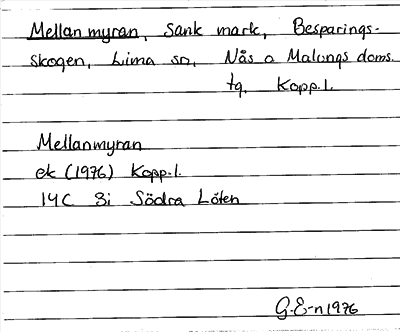 Mellanmyran, Sank mark, Besparings-
skogen, Lima sn, Nås o Malungs doms.
tg, Kopp.l.
Mellanmyran
ek (1976) Kopp.l.
14C 8i Södra Löten
G.E-n 1976